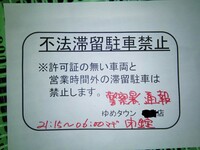 不法滞留駐車禁止
※許可証の無い車両と
営業時間外の滞留駐車は
禁止します。警察署 通報
ゆめタウン 店
21:15～06:00まで 閉鎖